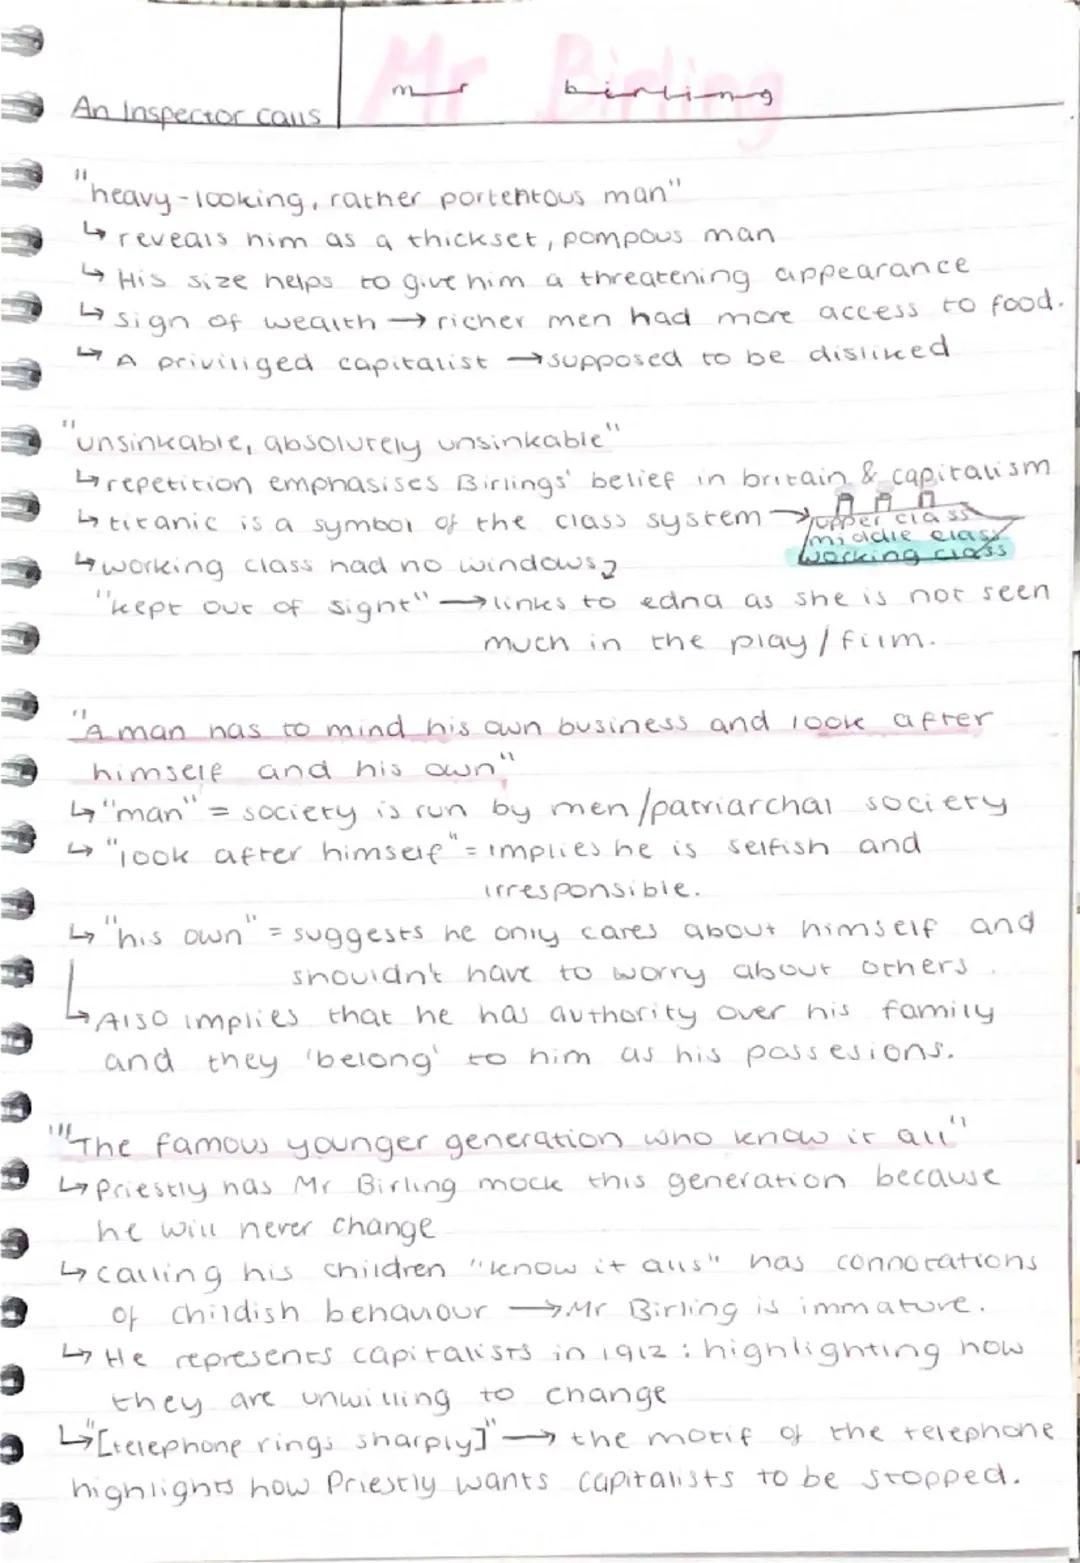 An Inspector calls
Mr Birling
mr birling
"heavy-looking, rather portentous man"
↳ reveals him as a thickset, pompous man
↳ His size helps to give him a threatening appearance
↳ sign of wealth → richer men had more access to food.
↳ A priviliged capitalist → supposed to be disliked
"unsinkable, absolutely unsinkable"
↳ repetition emphasises Birlings' belief in britain & capitalism
↳ titanic is a symbol of the class system →
upper class
middle class
working class
↳ working class had no windows,
"kept out of sight" → links to edna as she is not seen
much in the play/film.
"A man has to mind his own business and look after
himself and his own"
↳ "man" = society is run by men/patriarchal society
↳ "look after himself" = implies he is selfish and
irresponsible.
↳ "his own" = suggests he only cares about himself and
shouldn't have to worry about others.
↳ Also implies that he has authority over his family
and they 'belong' to him as his possesions.
"The famous younger generation who know it all"
↳ Priestly has Mr Birling mock this generation because
he will never change
↳ calling his children "know it alls" has connotations
of childish behaviour → Mr Birling is immature.
↳ He represents capitalists in 1912: highlighting how
they are unwilling to change
↳ "[telephone rings sharply]" → the motif of the telephone
highlights how Priestly wants capitalists to be stopped.